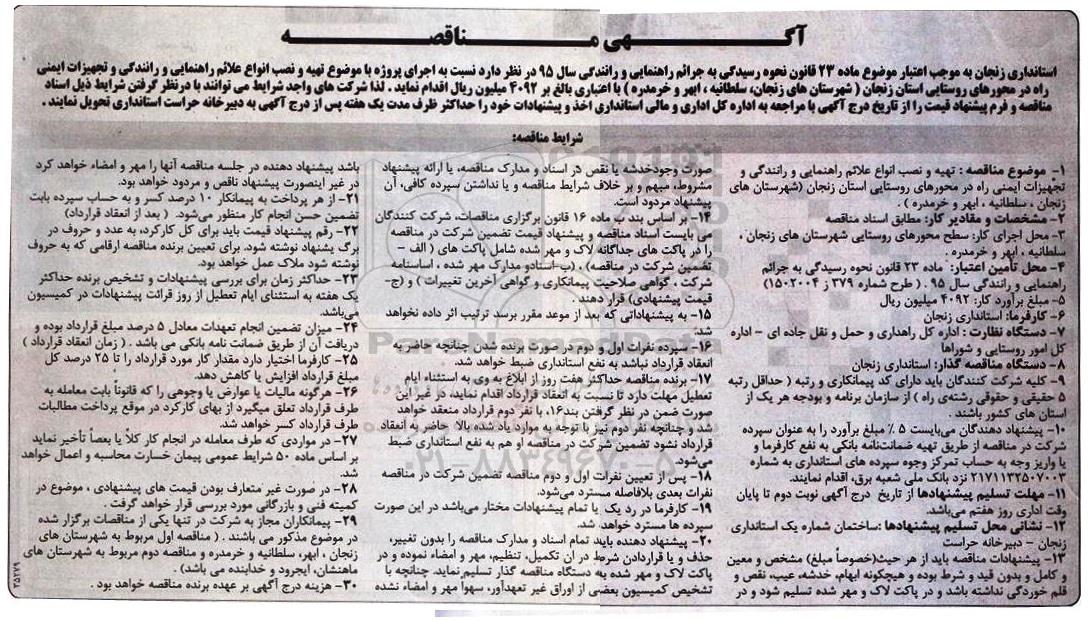 آگهی مناقصه
استانداری زنجان به موجب اعتبار موضوع ماده ۲۳ قانون نحوه رسیدگی به جرائم راهنمایی و رانندگی سال ۹۵ در نظر دارد نسبت به اجرای پروژه با موضوع تهیه و نصب انواع علائم راهنمایی و رانندگی و تجهیزات ایمنی
راه در محورهای روستایی استان زنجان ( شهرستان های زنجان، سلطانیه ، ابهر و خرمدره ) با اعتباری بالغ بر ۴۰۹۲ میلیون ریال اقدام نماید . لذا شرکت های واجد شرایط می توانند با درنظر گرفتن شرایط ذیل اسناد
مناقصه و فرم پیشنهاد قیمت را از تاریخ درج آگهی با مراجعه به اداره کل اداری و مالی استانداری اخذ و پیشنهادات خود را حداکثر ظرف مدت یک هفته پس از درج آگهی به دبیرخانه حراست استانداری تحویل نمایند .
شرایط مناقصه:
۱- موضوع مناقصه : تهیه و نصب انواع علائم راهنمایی و رانندگی و
تجهیزات ایمنی راه در محورهای روستایی استان زنجان (شهرستان های
زنجان ، سلطانیه ، ابهر و خرمدره ) .
۲- مشخصات و مقادیر کار: مطابق اسناد مناقصه
۳- محل اجرای کار: سطح محورهای روستایی شهرستان های زنجان ،
سلطانیه ، ابهر و خرمدره .
۴- محل تأمین اعتبار: ماده ۲۳ قانون نحوه رسیدگی به جرائم
راهنمایی و رانندگی سال ۹۵ . ( طرح شماره ۳۷۹ ز ۱۵۰۲۰۰۴)
۵- مبلغ برآورد کار: ۴۰۹۲ میلیون ریال
۶- کارفرما: استانداری زنجان
۷- دستگاه نظارت : اداره کل راهداری و حمل و نقل جاده ای - اداره
کل امور روستایی و شوراها
۸- دستگاه مناقصه گذار: استانداری زنجان
۹- کلیه شرکت کنندگان باید دارای کد پیمانکاری و رتبه ( حداقل رتبه
۵ حقیقی و حقوقی رشته‌ی راه ) از سازمان برنامه و بودجه هر یک از
استان های کشور باشند .
۱۰- پیشنهاد دهندگان می‌بایست ۵ ٪ مبلغ برآورد را به عنوان سپرده
شرکت در مناقصه از طریق تهیه ضمانت‌نامه بانکی به نفع کارفرما و
یا واریز وجه به حساب تمرکز وجوه سپرده های استانداری به شماره
۲۱۷۱۱۳۲۵۰۷۰۰۳ نزد بانک ملی شعبه برق، اقدام نمایند.
۱۱- مهلت تسلیم پیشنهادها از تاریخ درج آگهی نوبت دوم تا پایان
وقت اداری روز هفتم می‌باشد.
۱۲- نشانی محل تسلیم پیشنهادها :ساختمان شماره یک استانداری
زنجان - دبیرخانه حراست
۱۳- پیشنهادات مناقصه باید از هر حیث(خصوصاً مبلغ) مشخص و معین
و کامل و بدون قید و شرط بوده و هیچگونه ابهام، خدشه، عیب، نقص و
قلم خوردگی نداشته باشد و در پاکت لاک و مهر شده تسلیم شود و در
صورت وجودخدشه یا نقص در اسناد و مدارک مناقصه، یا ارائه پیشنهاد
مشروط، مبهم و بر خلاف شرایط مناقصه و یا نداشتن سپرده کافی، آن
پیشنهاد مردود است.
۱۴- بر اساس بند ب ماده ۱۶ قانون برگزاری مناقصات، شرکت کنندگان
می بایست اسناد مناقصه و پیشنهاد قیمت تضمین شرکت در مناقصه
را در پاکت های جداگانه لاک و مهر شده شامل پاکت های ( الف -
تضمین شرکت در مناقصه) ، (ب -اسنادو مدارک مهر شده ، اساسنامه
شرکت ، گواهی صلاحیت پیمانکاری و گواهی آخرین تغییرات ) و (ج-
قیمت پیشنهادی) قرار دهند .
۱۵- به پیشنهاداتی که بعد از موعد مقرر برسد ترتیب اثر داده نخواهد
شد.
۱۶- سپرده نفرات اول و دوم در صورت برنده شدن چنانچه حاضر به
انعقاد قرارداد نباشد به نفع استانداری ضبط خواهد شد.
۱۷- برنده مناقصه حداکثر هفت روز از ابلاغ به وی به استثناء ایام
تعطیل مهلت دارد تا نسبت به انعقاد قرارداد اقدام نماید، در غیر این
صورت ضمن در نظر گرفتن بند۱۶، با نفر دوم قرارداد منعقد خواهد
شد و چنانچه نفر دوم نیز با توجه به موارد یاد شده بالا حاضر به انعقاد
قرارداد نشود تضمین شرکت در مناقصه او هم به نفع استانداری ضبط
می‌شود.
۱۸- پس از تعیین نفرات اول و دوم مناقصه تضمین شرکت در مناقصه
نفرات بعدی بلافاصله مسترد می‌شود.
۱۹- کارفرما در رد یک یا تمام پیشنهادات مختار می‌باشد در این صورت
سپرده ها مسترد خواهد شد.
۲۰- پیشنهاد دهنده باید تمام اسناد و مدارک مناقصه را بدون تغییر،
حذف و یا قراردادن شرط در آن تکمیل، تنظیم، مهر و امضاء نموده و در
پاکت لاک و مهر شده به دستگاه مناقصه گذار تسلیم نماید. چنانچه با
تشخیص کمیسیون بعضی از اوراق غیر تعهدآور، سهوا مهر و امضاء نشده
باشد پیشنهاد دهنده در جلسه مناقصه آنها را مهر و امضاء خواهد کرد
در غیر اینصورت پیشنهاد ناقص و مردود خواهد بود.
۲۱- از هر پرداخت به پیمانکار ۱۰ درصد کسر و به حساب سپرده بابت
تضمین حسن انجام کار منظور می‌شود. ( بعد از انعقاد قرارداد)
۲۲- رقم پیشنهاد قیمت باید برای کل کارکرد، به عدد و حروف در
برگ پشنهاد نوشته شود. برای تعیین برنده مناقصه ارقامی که به حروف
نوشته شود ملاک عمل خواهد بود.
۲۳- حداکثر زمان برای بررسی پیشنهادات و تشخیص برنده حداکثر
یک هفته به استثنای ایام تعطیل از روز قرائت پیشنهادات در کمیسیون
می‌باشد.
۲۴- میزان تضمین انجام تعهدات معادل ۵ درصد مبلغ قرارداد بوده و
دریافت آن از طریق ضمانت نامه بانکی می باشد . ( زمان انعقاد قرارداد )
۲۵- کارفرما اختیار دارد مقدار کار مورد قرارداد را تا ۲۵ درصد کل
مبلغ قرارداد افزایش یا کاهش دهد.
۲۶- هرگونه مالیات یا عوارض یا وجوهی را که قانوناً بابت معامله به
طرف قرارداد تعلق میگیرد از بهای کارکرد در موقع پرداخت مطالبات
طرف قرارداد کسر خواهد شد.
۲۷- در مواردی که طرف معامله در انجام کار کلاً یا بعضاً تأخیر نماید
بر اساس ماده ۵۰ شرایط عمومی پیمان خسارت محاسبه و اعمال خواهد
شد.
۲۸- در صورت غیر متعارف بودن قیمت های پیشنهادی ، موضوع در
کمیته فنی و بازرگانی مورد بررسی قرار خواهد گرفت .
۲۹- پیمانکاران مجاز به شرکت در تنها یکی از مناقصات برگزار شده
در موضوع مذکور می باشند . ( مناقصه اول مربوط به شهرستان های
زنجان ، ابهر، سلطانیه و خرمدره و مناقصه دوم مربوط به شهرستان های
ماهنشان، ایجرود و خدابنده می باشد) .
۳۰- هزینه درج آگهی بر عهده برنده مناقصه خواهد بود .
۳۵۲۷۹
ParsNamadData
۰۲۱-۸۸۳۴۹۶۷۰-۵